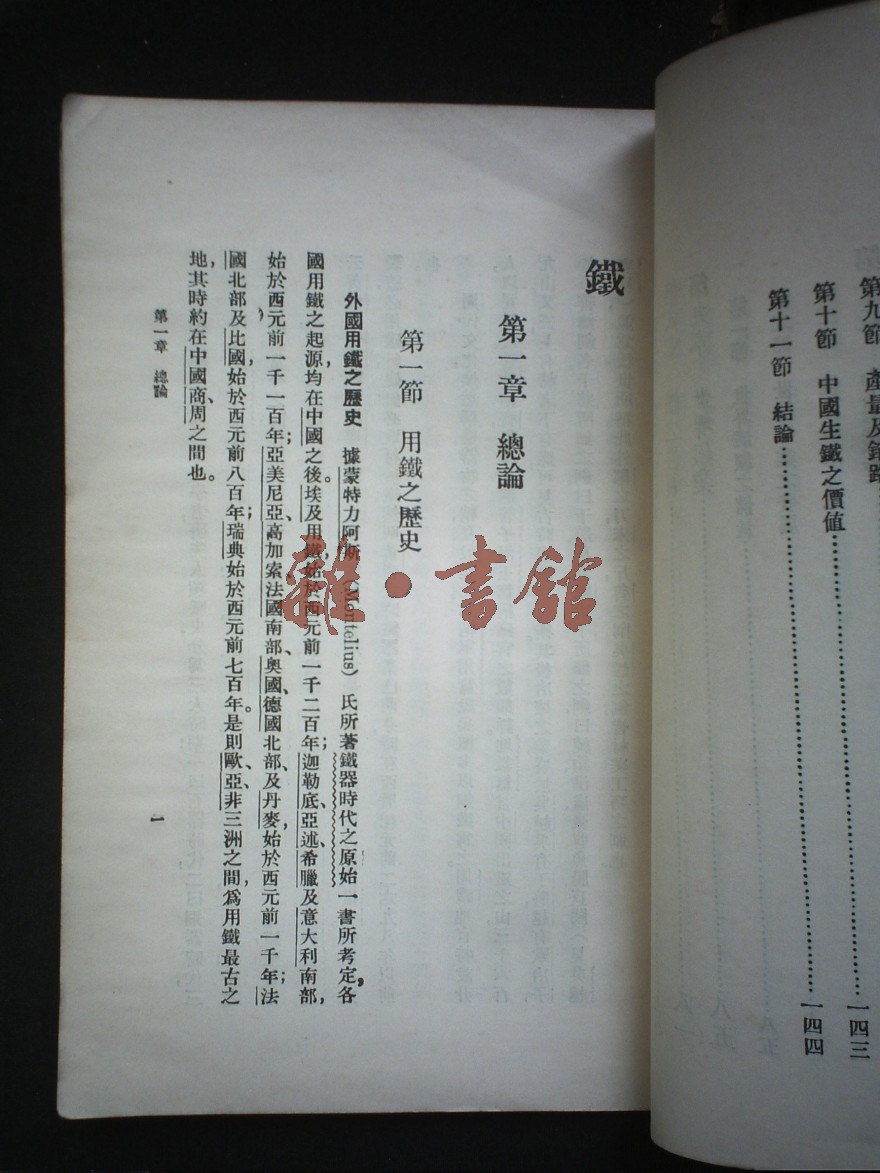 第九節 產量及銷路……一四三
第十節 中國生鐵之價値……一四四
第十一節 結論……一四四
鐵
第一章 總論
第一節 用鐵之歷史
外國用鐵之歷史 據蒙特力阿斯(Montelius)氏所著鐵器時代之原始一書所考定,各
國用鐵之起源,均在中國之後。埃及用鐵,始於西元前一千二百年;迦勒底、亞述、希臘及意大利南部,
始於西元前一千一百年;亞美尼亞、高加索、法國南部、奧國、德國北部、及丹麥,始於西元前一千年;法
國北部及比國始於西元前八百年;瑞典始於西元前七百年。是則歐、亞、非三洲之間,爲用鐵最古之
地,其時約在中國商、周之間也。
第一章 總論
一
雜·書館